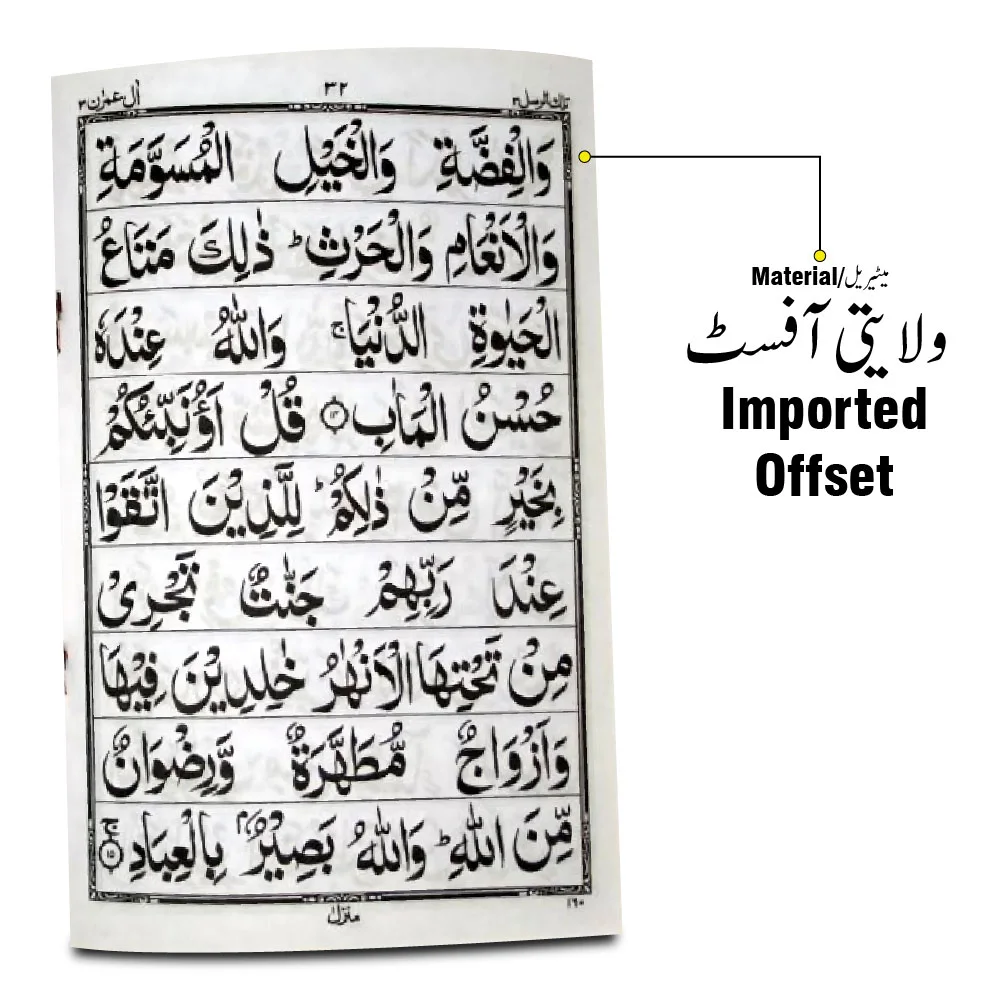 اٰل عمرٰن ۳
۳۲
تلك الرسل ۳
وَالْفِضَّةِ وَالْخَيْلِ الْمُسَوَّمَةِ
وَالْاَنْعَامِ وَالْحَرْثِ ؕ ذٰلِكَ مَتَاعُ
الْحَيٰوةِ الدُّنْيَا ۚ وَاللّٰهُ عِنْدَهٗ
حُسْنُ الْمَاٰبِ ۝۱۴ قُلْ اَؤُنَبِّئُكُمْ
بِخَيْرٍ مِّنْ ذٰلِكُمْ ؕ لِلَّذِيْنَ اتَّقَوْا
عِنْدَ رَبِّهِمْ جَنّٰتٌ تَجْرِىْ
مِنْ تَحْتِهَا الْاَنْهٰرُ خٰلِدِيْنَ فِيْهَا
وَاَزْوَاجٌ مُّطَهَّرَةٌ وَّرِضْوَانٌ
مِّنَ اللّٰهِ ؕ وَاللّٰهُ بَصِيْرٌۢ بِالْعِبَادِ ۝۱۵ ۚ
منزل ۱
Material/میٹیریل
ولایتی آفسٹ
Imported
Offset